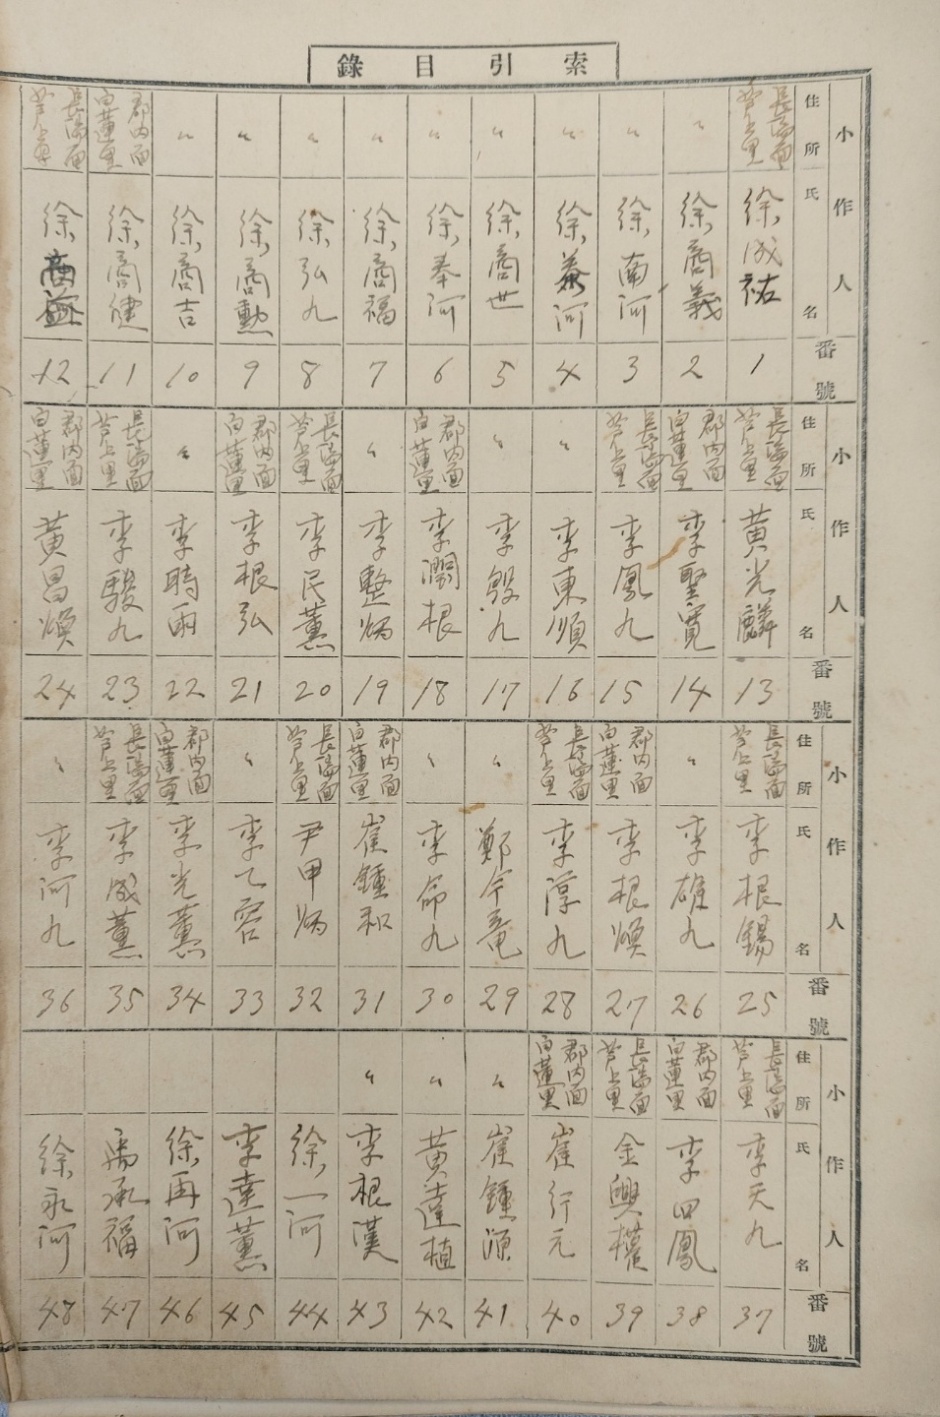 索引目錄
小作人 住所 氏名 番號
長湍面 芦上里 徐成祐 1
〃 徐商義 2
〃 徐南河 3
〃 徐義河 4
〃 徐商世 5
〃 徐奉河 6
〃 徐商福 7
〃 徐弘九 8
〃 徐商勳 9
〃 徐商吉 10
郡内面 白蓮里 徐商健 11
長湍面 芦上里 徐商益 12
小作人 住所 氏名 番號
長湍面 芦上里 黃光麟 13
郡内面 白蓮里 李聖寬 14
長湍面 芦上里 李鳳九 15
〃 李東順 16
〃 李殷九 17
郡内面 白蓮里 李潤根 18
〃 李整炳 19
長湍面 芦上里 李民薰 20
郡内面 白蓮里 李根弘 21
〃 李時雨 22
長湍面 芦上里 李駿九 23
郡内面 白蓮里 黃昌煥 24
小作人 住所 氏名 番號
長湍面 芦上里 李根錫 25
〃 李雄九 26
郡内面 白蓮里 李根煥 27
長湍面 芦上里 李淳九 28
〃 鄭今竜 29
〃 李命九 30
郡内面 白蓮里 崔鍾和 31
長湍面 芦上里 尹甲炳 32
〃 李乙容 33
郡内面 白蓮里 李光薰 34
長湍面 芦上里 李成薰 35
〃 李河九 36
小作人 住所 氏名 番號
長湍面 芦上里 李天九 37
郡内面 白蓮里 李四鳳 38
長湍面 芦上里 金興權 39
郡内面 白蓮里 崔行元 40
〃 崔鍾源 41
〃 黃達植 42
〃 李根漢 43
徐一河 44
李達薰 45
徐再河 46
禹承福 47
徐永河 48